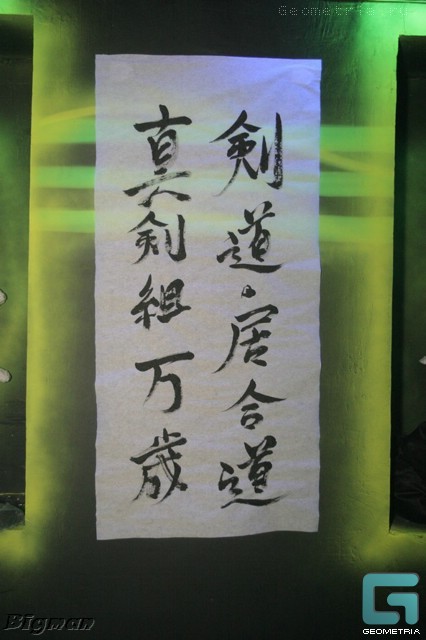 Geometria.ru
剣道・居合道
真剣組万歳
Bigman
GEOMETRIA